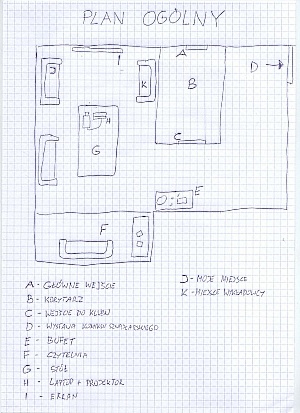 PLAN OGÓLNY
A
I
J
K
B
D
H
G
C
E
F
A - GŁÓWNE WEJŚCIE
B - KORYTARZ
C - WEJŚCIE DO KLUBU
D - WYSTAWA
E - BUFET
F - CZYTELNIA
G - STÓŁ
H - LAPTOP + PROJEKTOR
I - EKRAN
J - MOJE MIEJSCE
K - MIEJSCE WYKŁADOWCY